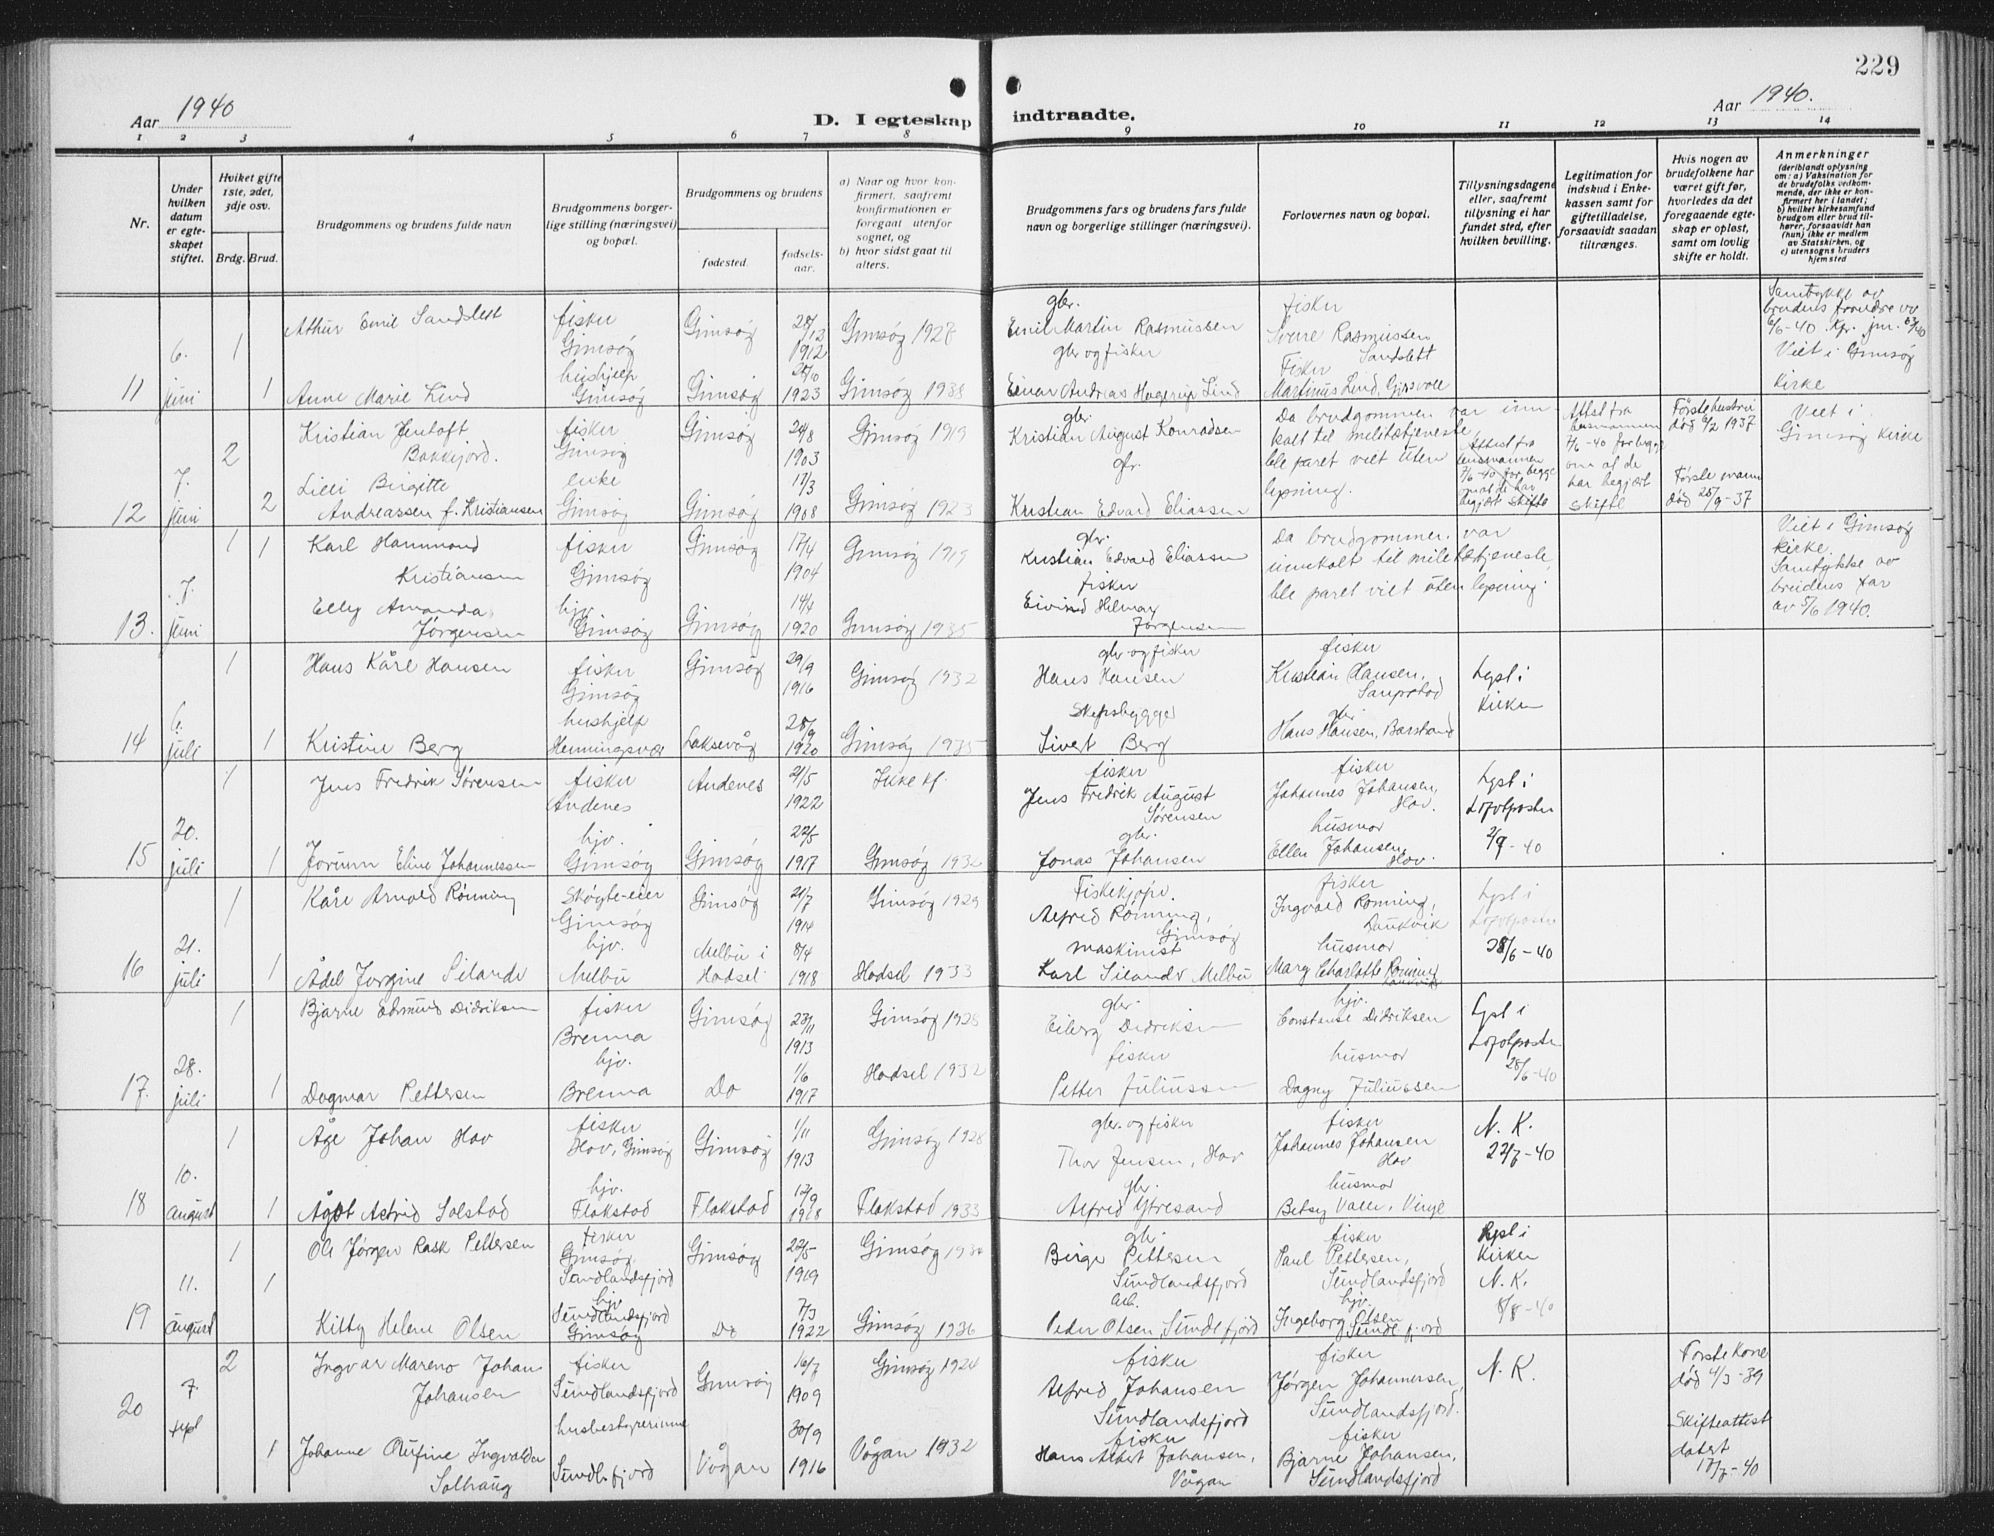 229
Aar 1940
D. I egteskap indtraadte.
Aar 1940.
1 2 3 4 5 6 7 8 9 10 11 12 13 14
Nr.
Under hvilken datum er egteskapet stiftet.
Hviket gifte 1ste, 2det, 3dje osv.
Brdg. Brud.
Brudgommens og brudens fulde navn
Brudgommens borgerlige stilling (næringsvei) og bopæl.
Brudgommens og brudens
fødested.
fødselsaar.
a) Naar og hvor konfirmert, saafremt konfirmationen er foregaat utenfor sognet, og
b) hvor sidst gaat til alters.
Brudgommens fars og brudens fars fulde navn og borgerlige stillinger (næringsvei).
Forlovernes navn og bopæl.
Tillysningsdagene eller, saafremt tillysning ei har fundet sted, efter hvilken bevilling.
Legitimation for indskud i Enkekassen samt for giftetilladelse, forsaavidt saadan tiltrænges.
Hvis nogen av brudefolkene har været gift før, hvorledes da det foregaaende egteskap er opløst, samt om lovlig skifte er holdt.
Anmerkninger
(deriblandt oplysning om: a) Vaksination for de brudefolks vedkommende, der ikke er konfirmert her i landet; b) hvilket kirkesamfund brudgom eller brud tilhører, forsaavidt han (hun) ikke er medlem av Statskirken, og c) utensogns bruders hjemsted
11
6. juni
1
Athur Emil Sandslett
fisker Gimsøy
Gimsøy
1912
Gimsøy 1927
gbr. Emil Martin Rasmussen
fisker Sverre Rasmussen Sandslett
Samtykke av brudens foreldre
Viet i Gimsøy Kirke
1
Anne Marie Lind
hushjelp Gimsøy
Gimsøy
1923
Gimsøy 1938
gbr og fisker Einar Andreas Hagerup Lind
Fisker Martinus Lind, Gjersvoll
12
7. juni
2
Kristian Jentoft Bakkejord.
fisker Gimsøy
Gimsøy
24/8 1903
Gimsøy 1919
gbr. Kristian August Konradsen
Da brudgommen var innkalt til militætjeneste ble paret viet uten lysning.
Attest fra lensmannen 7/6-40 for begge om at de har begjært skifte
Attst fra lensmannen 7/6-40 for begge om at de har begjært skifte
Første hustru død 1937
Første mann død 28/9-37
Viet i Gimsøy Kirke
2
Lilli Birgitte Andreassen f. Kristiansen
enke Gimsøy
Gimsøy
17/3 1908
Gimsøy 1923
gbr. Kristian Edvard Eliassen
13.
7. juni
1 1
Karl Hammond Kristiansen
fisker Gimsøy
Gimsøy
17/4 1904
Gimsøy 1919
gbr. Kristian Edvard Eliassen
Da brudgommen var innkalt til militætjeneste, ble paret viet uten lysning.
Viet i Gimsøy Kirke. Samtykke av brudens far av 5/6 1940.
Elly Amanda Jørgensen
hjv. Gimsøy
Gimsøy
14/4 1920
Gimsøy 1935
fisker Eivind Hilmar Jørgensen
14
6. juli
1
Hans Kåre Hansen
fisker Gimsøy
Gimsøy
29/9 1916
Gimsøy 1932
gbr og fisker Hans Hansen
fisker Kristian Hansen,
Lyst i Kirken
1
Kristine Berg
hushjelp Henningsvær
Laksevåg
28/9 1920
Gimsøy 1935
Skipsbygger Sivert Berg
gbr Hans Hansen, Barstrand
15
20. juli
1
Jens Fredrik Sørensen
fisker Andenes
Andenes
21/5 1922
Ikke kf.
fisker Jens Fredrik August Sørensen
fisker Johannes Johansen, Hov.
Lyst i Lofotposten 2/7-40
1
Jorunn Eline Johannessen
hjv. Gimsøy
Gimsøy
22/5 1917
Gimsøy 1932
gbr. Jonas Johansen
husmor Ellen Johansen, Hov.
16
21. juli
1
Kåre Arnold Rönning
Skøyte-eier Gimsøy
Gimsøy
21/7 1914
Gimsøy 1929
Fiskekjøpr. Alfred Rönning, Gimsøy
fisker Ingvald Rönning,
Lyst i Lofotposten 28/6-40
1
Ådel Jorgine Silande
hjv. Melbu
Melbu i Hadsel
8/4 1918
Hadsel 1933
maskinist Karl Silande Melbu
husmor Marg Charlotte Rönning
17.
28. juli
1
Bjarne Edmund Didriksen
fisker Brenna
Gimsøy
23/11 1913
Gimsøy 1928
gbr. Eilerg Didriksen
hjv. Constanse Didriksen
Lyst i Lofotposten 28/6-40
1
Dagmar Pettersen
hjv. Brenna
Do
1/6 1917
Hadsel 1932
fisker Petter Juliussen
husmor Dagny Juliussen
18
10. august
1
Åge Johan Hov
fisker Hov, Gimsøy
Gimsøy
1/11 1913
Gimsøy 1928
gbr. og fisker Thor Jensen, Hov
fisker Johannes Johansen Hov
N. K. 22/7-40
1
Ågot Astrid Solstad
hjv. Flakstad
Flakstad
12/9 1918
Flakstad 1933
gbr. Alfred Ytresand
husmor Betsy Valle, Vinje
19
11. august
1
Ole Jørgen Rask Pettersen
fisker Gimsøy, Sundlandsfjord
Gimsøy
22/5 1919
Gimsøy 1934
gbr. Birge Pettersen Sundlandsfjord
fisker Paul Pettersen, Sundlandsfjord
Lyst i Kirken N. K. 8/8-40
1
Kitty Helene Olsen
hjv Sundlandsfjord Gimsøy
Do
7/3 1922
Gimsøy 1936
arb. Peder Olsen, Sundlfjord
hjv. Ingeborg Olsen Sundlfjord
20
7. sept
2
Ingvar Mareno Johan Johansen
fisker Sundlandsfjord
Gimsøy
16/7 1909
Gimsøy 1924
fisker Alfred Johansen Sundlandsfjord
fisker Jørgen Johannersen, Sundlandsfjord.
N. K.
Første kone død 4/3-39
Skifteattest datert 17/7-40
1
Johanne Rufine Ingvalda Solhaug
husbestyrerinne Sundlsfjord
Vågan
30/9 1916
Vågan 1932
fisker Hans Albert Johansen, Vågan
fisker Bjarne Johansen, Sundlandsfjord